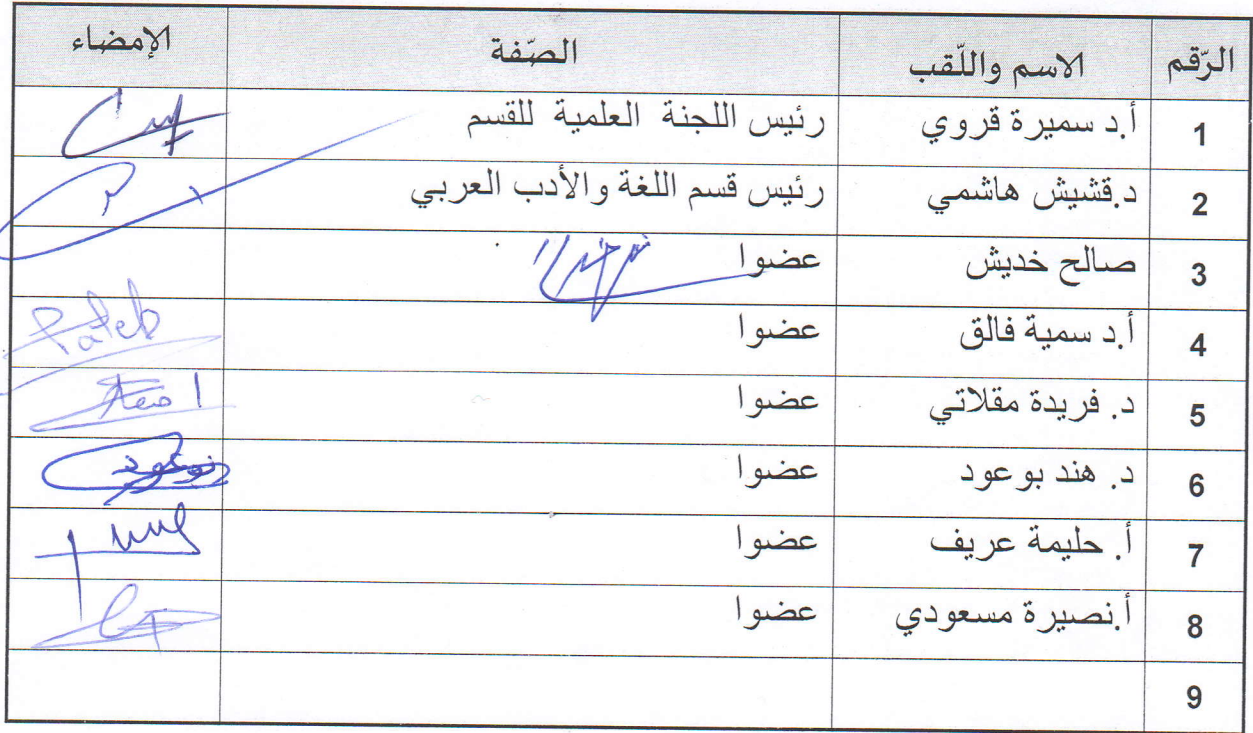 الرّقم الاسم واللّقب الصّفة الإمضاء
1 أ.د سميرة قروي رئيس اللجنة العلمية للقسم
2 د.قشيش هاشمي رئيس قسم اللغة والأدب العربي
3 صالح خديش عضوا
4 أ.د سمية فالق عضوا
5 د. فريدة مقلاتي عضوا
6 د. هند بوعود عضوا
7 أ. حليمة عريف عضوا
8 أ.نصيرة مسعودي عضوا
9